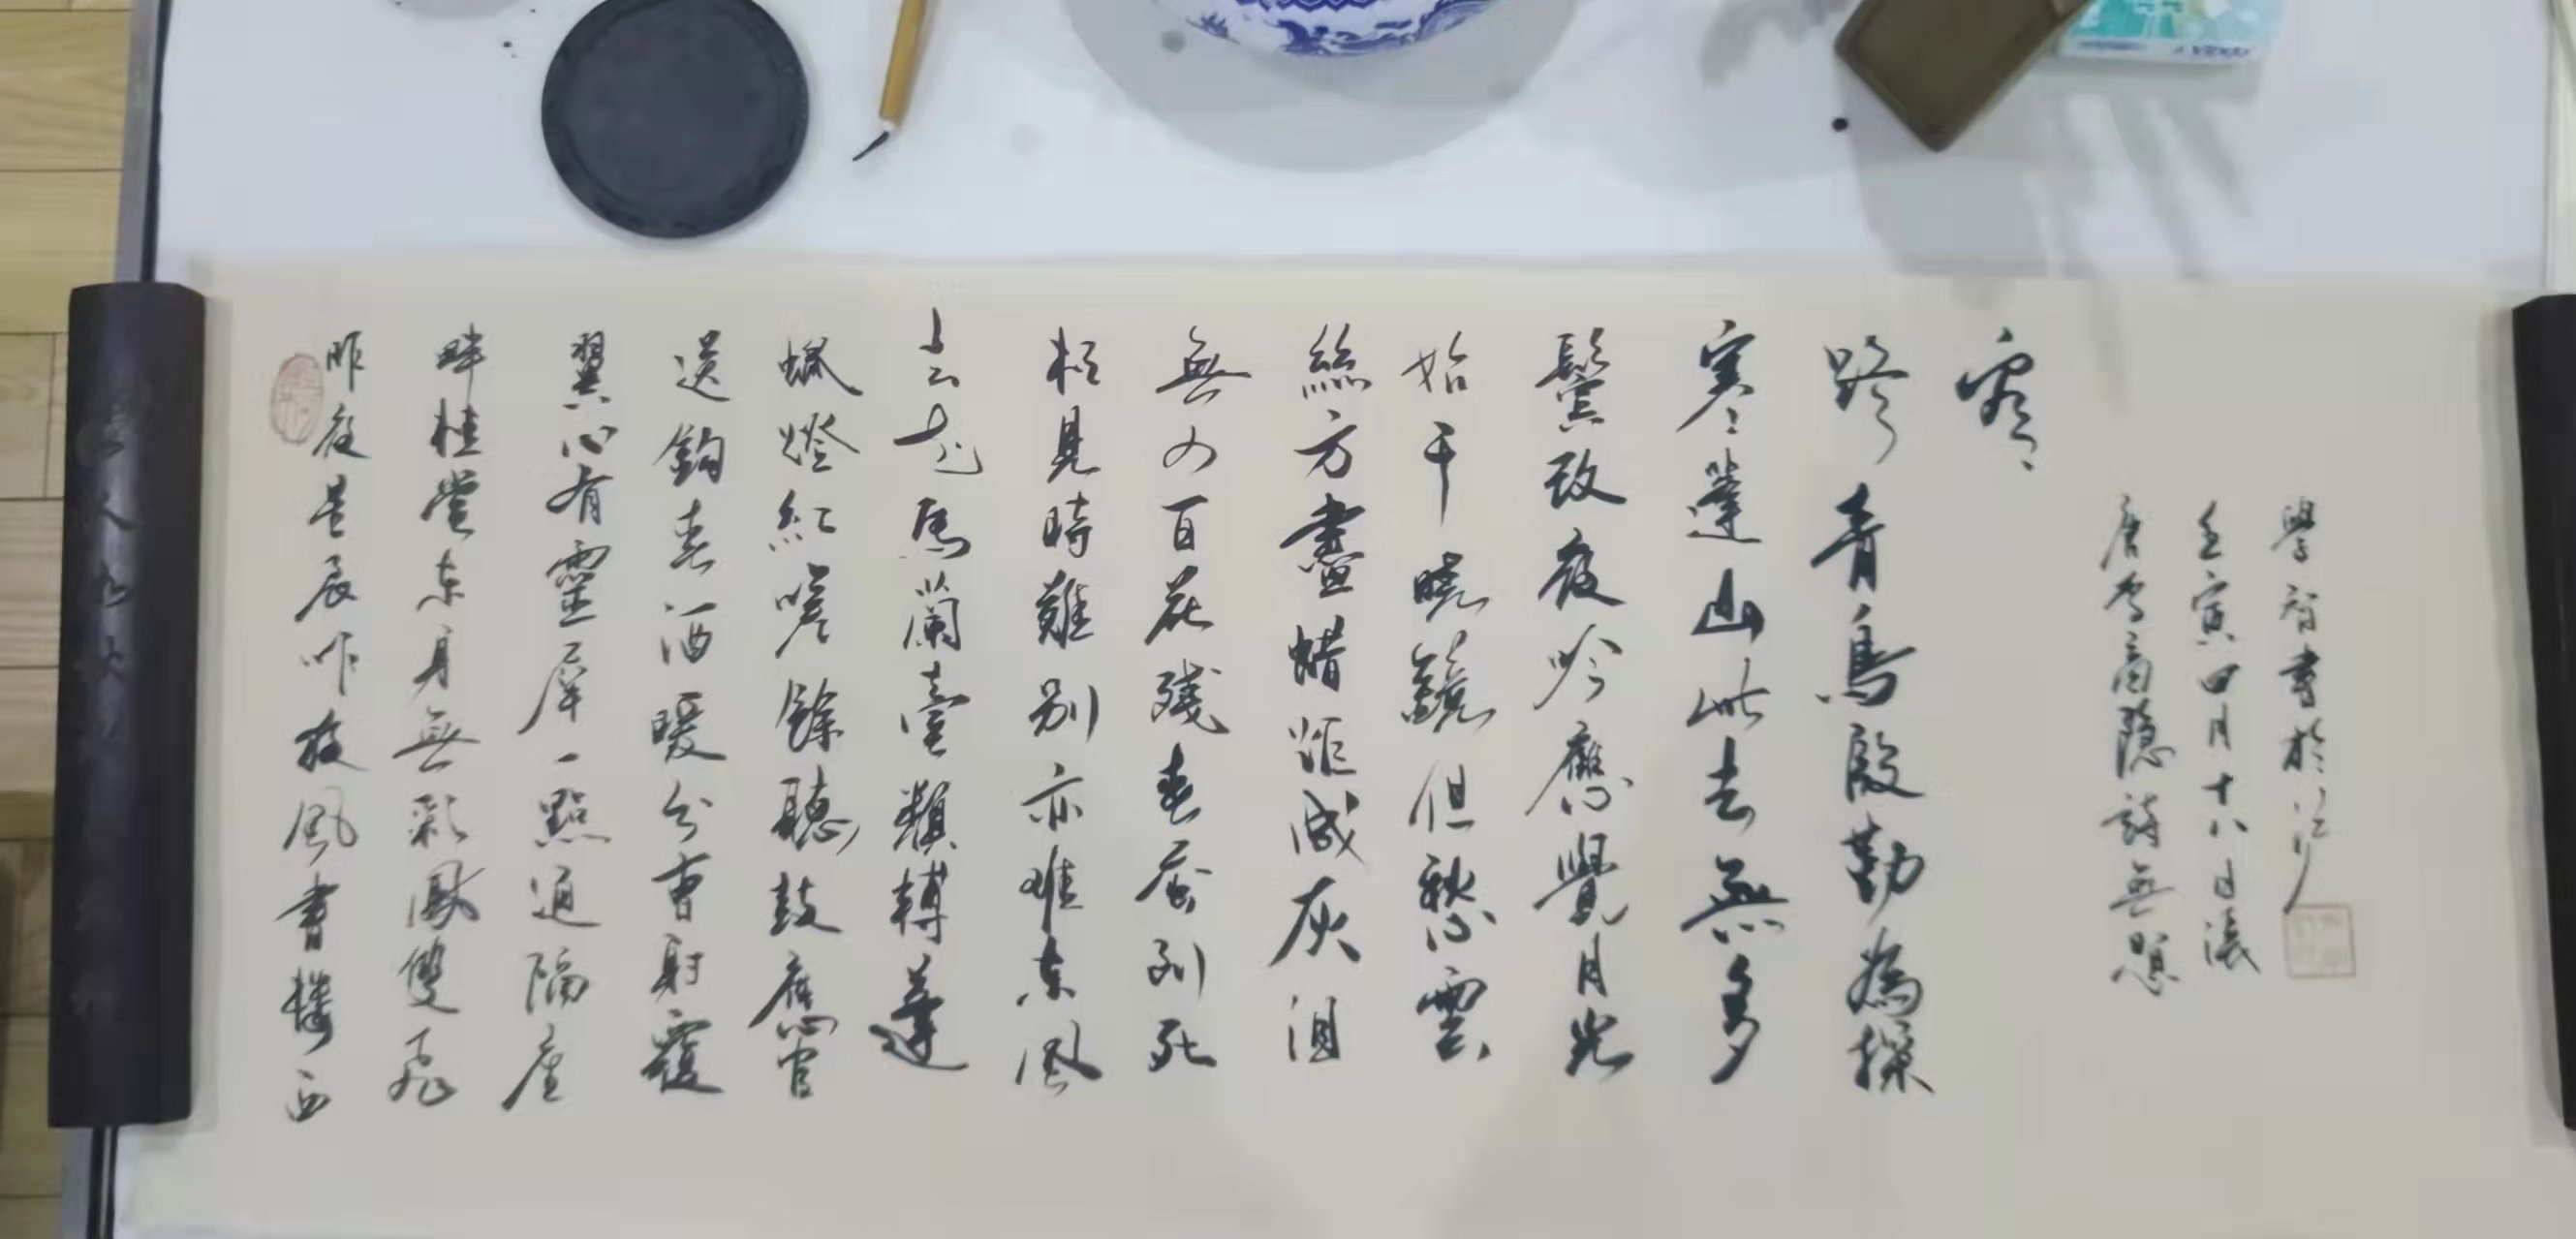 昨夜星辰昨夜風畫樓西
畔桂堂東身無彩鳳雙飛
翼心有靈犀一點通隔座
送鈎春酒暖分曹射覆
蠟燈紅嗟餘聽鼓應官
去走馬蘭臺類轉蓬
相見時難別亦難東風
無力百花殘春蠶到死
絲方盡蠟炬成灰泪
始干曉鏡但愁雲
鬢改夜吟應覺月光
寒蓬山此去無多
路青鳥殷勤為探
看
唐李商隱詩無題
壬寅四月十八日
學智書於